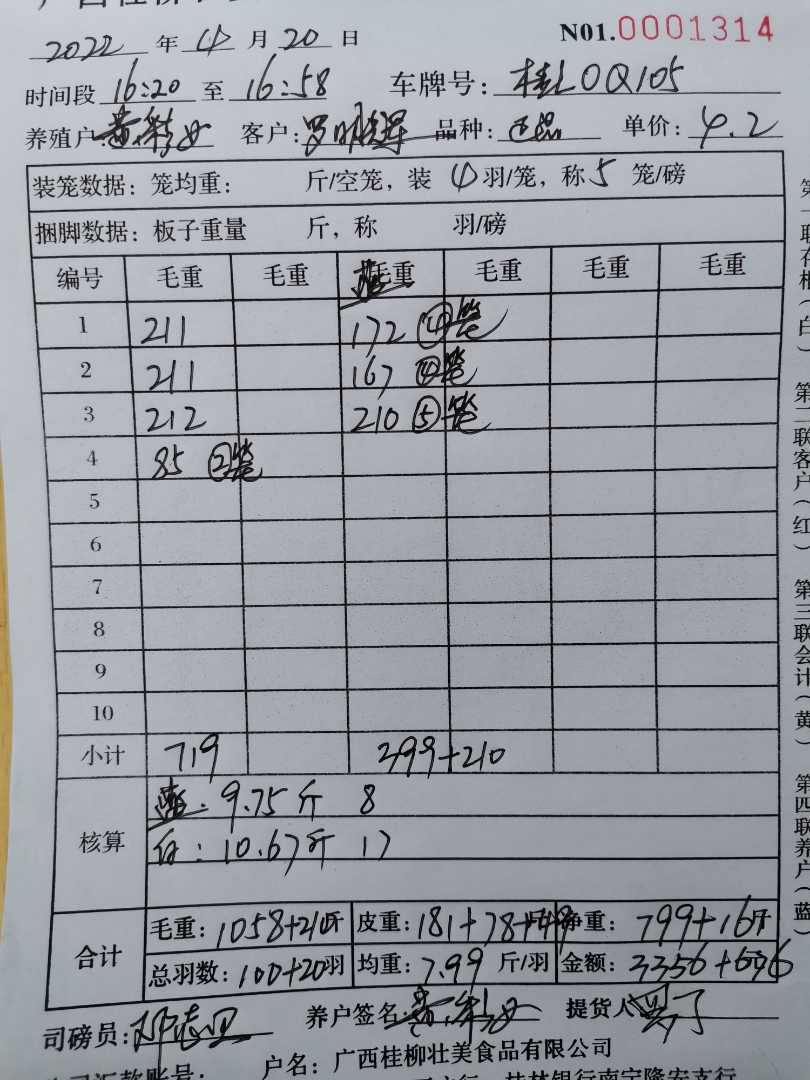 2022 年 4 月 20 日 N01.0001314
时间段 16:20 至 16:58 车牌号: 桂LOQ105
养殖户: 客户: 罗 品种: 正品 单价: 4.2
装笼数据: 笼均重: 斤/空笼, 装 4 羽/笼, 称 5 笼/磅
捆脚数据: 板子重量 斤, 称 羽/磅
编号 毛重 毛重 毛重 毛重 毛重 毛重
1 211 172 ④笼
2 211 167 ④笼
3 212 210 ⑤笼
4 85 ②笼
5
6
7
8
9
10
小计 719 399+210
核算 : 9.75斤 8
白: 10.67斤 17
合计 毛重: 1058+210斤 皮重: 181+78+ 净重: 799+16斤
总羽数: 100+20羽 均重: 7.99 斤/羽 金额: 3356+
司磅员: 养户签名: 提货人
户名: 广西桂柳壮美食品有限公司
桂林银行南宁隆安支行
第一联存根(白) 第二联客户(红) 第三联会计(黄) 第四联养户(蓝)